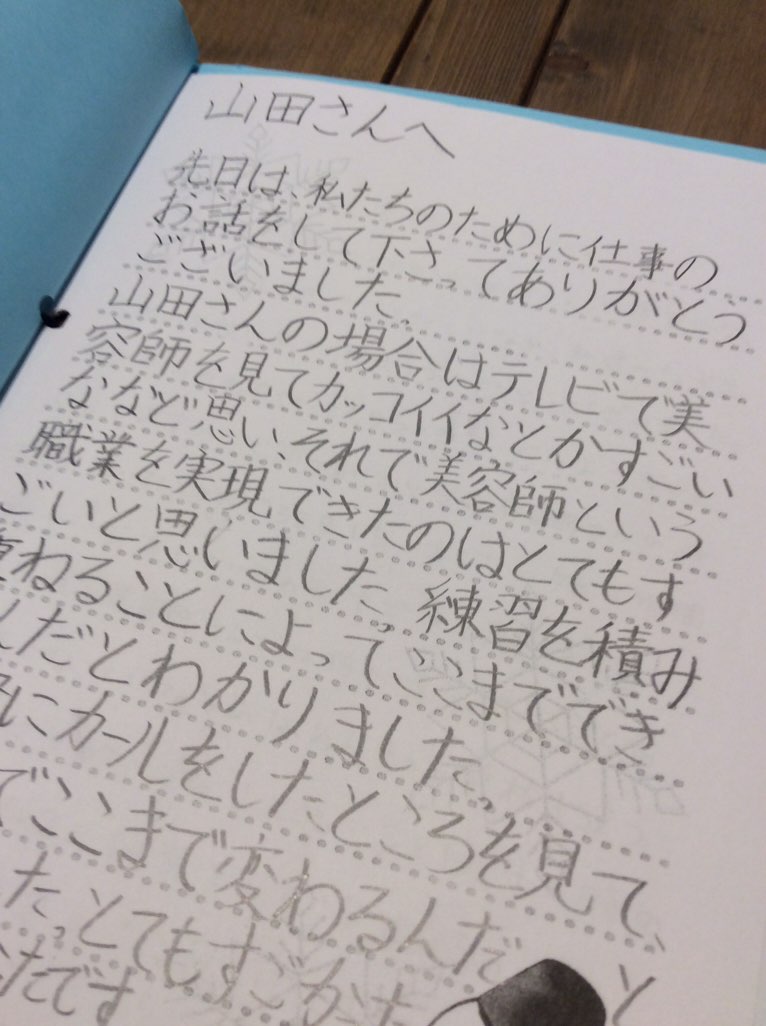 山田さんへ
先日は、私たちのために仕事の
お話をして下さってありがとう
ございました。
山田さんの場合はテレビで美
容師を見てカッコイイなとかすごい
ななど思い、それで美容師という
職業を実現できたのはとてもす
ごいと思いました。練習を積み
重ねることによってここまででき
んだとわかりました。
にカールをしたところを見て、
でここまで変わるんだ と
た。とてもすごかった
たです